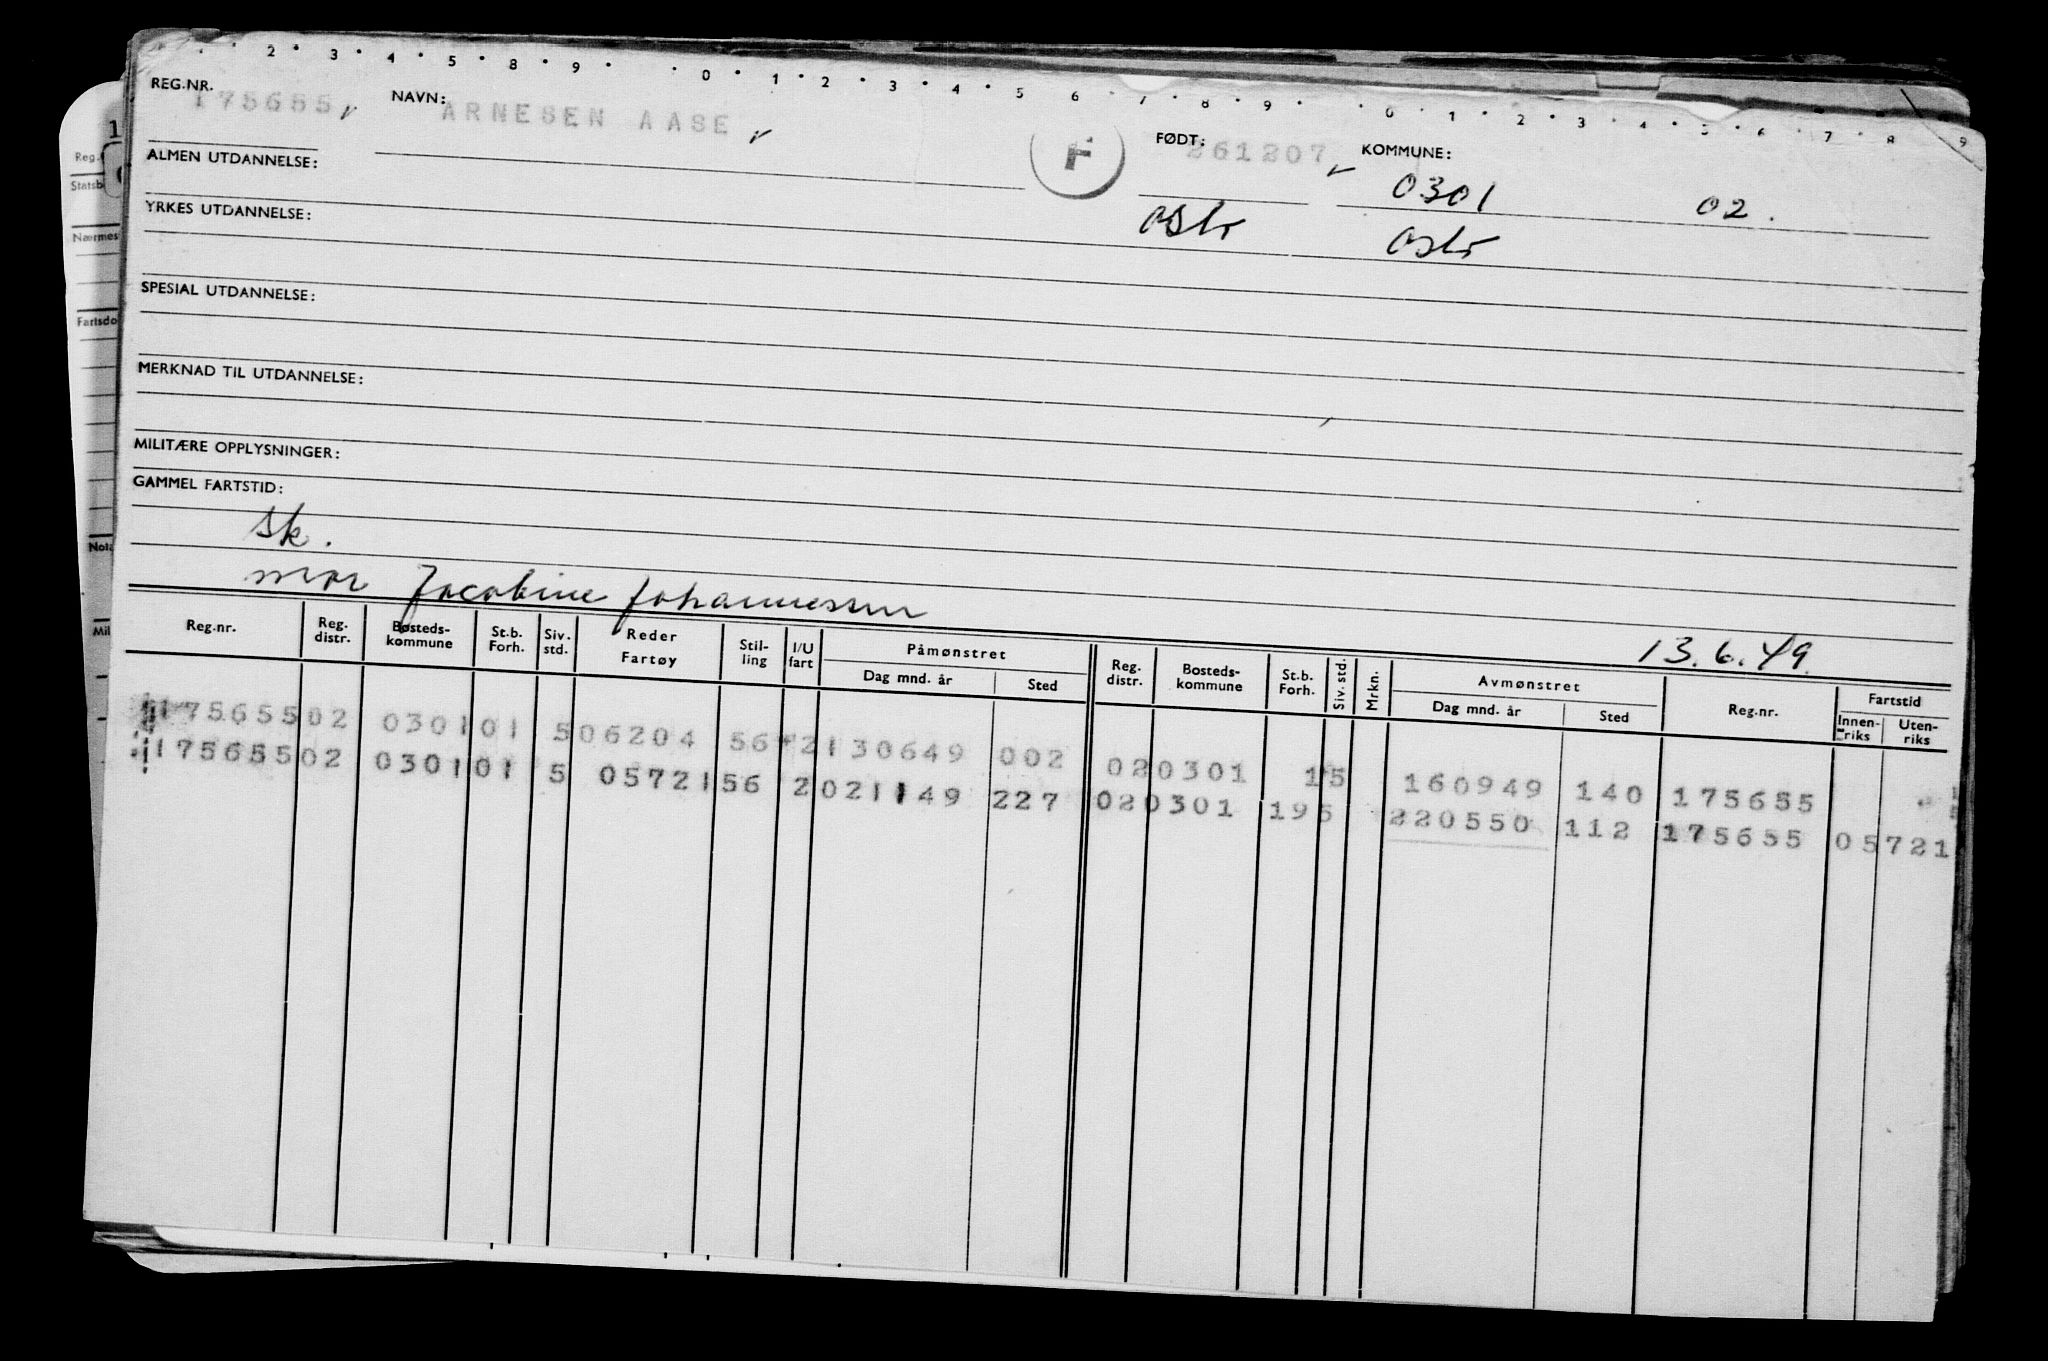 2 · 3 · 4 · 5 · 8 · 9 · 0 · 1 · 2 · 3 · 4 · 5 · 6 · 7 · 8 · 9 · 0 · 1 · 2 · 3 · 4 · 5 · 6 · 7 · 8 · 9
REG.NR. 175655 NAVN: ARNESEN AASE F FØDT: 261207 KOMMUNE:
ALMEN UTDANNELSE: 0301 02.
YRKES UTDANNELSE: Oslo Oslo
SPESIAL UTDANNELSE:
MERKNAD TIL UTDANNELSE:
MILITÆRE OPPLYSNINGER:
GAMMEL FARTSTID:
sk.
mor Jacobine Johannessen 13.6.49.
Reg.nr. Reg. distr. Bosteds-kommune St.b. Forh. Siv. std. Reder Fartøy Stil-ling I/U fart Påmønstret Dag mnd. år Sted Reg. distr. Bosteds-kommune St.b. Forh. Siv. std. Mrkn. Avmønstret Dag mnd. år Sted Reg.nr. Fartstid Innen-riks Uten-riks
175655 02 0301 01 5 06204 56 2 130649 002 02 0301 1 5 160949 140 175655
175655 02 0301 01 5 05721 56 2 021149 227 02 0301 19 5 220550 112 175655 05721
Reg.
Statsb
Nærmes
Fartsdo
Nota
Mil